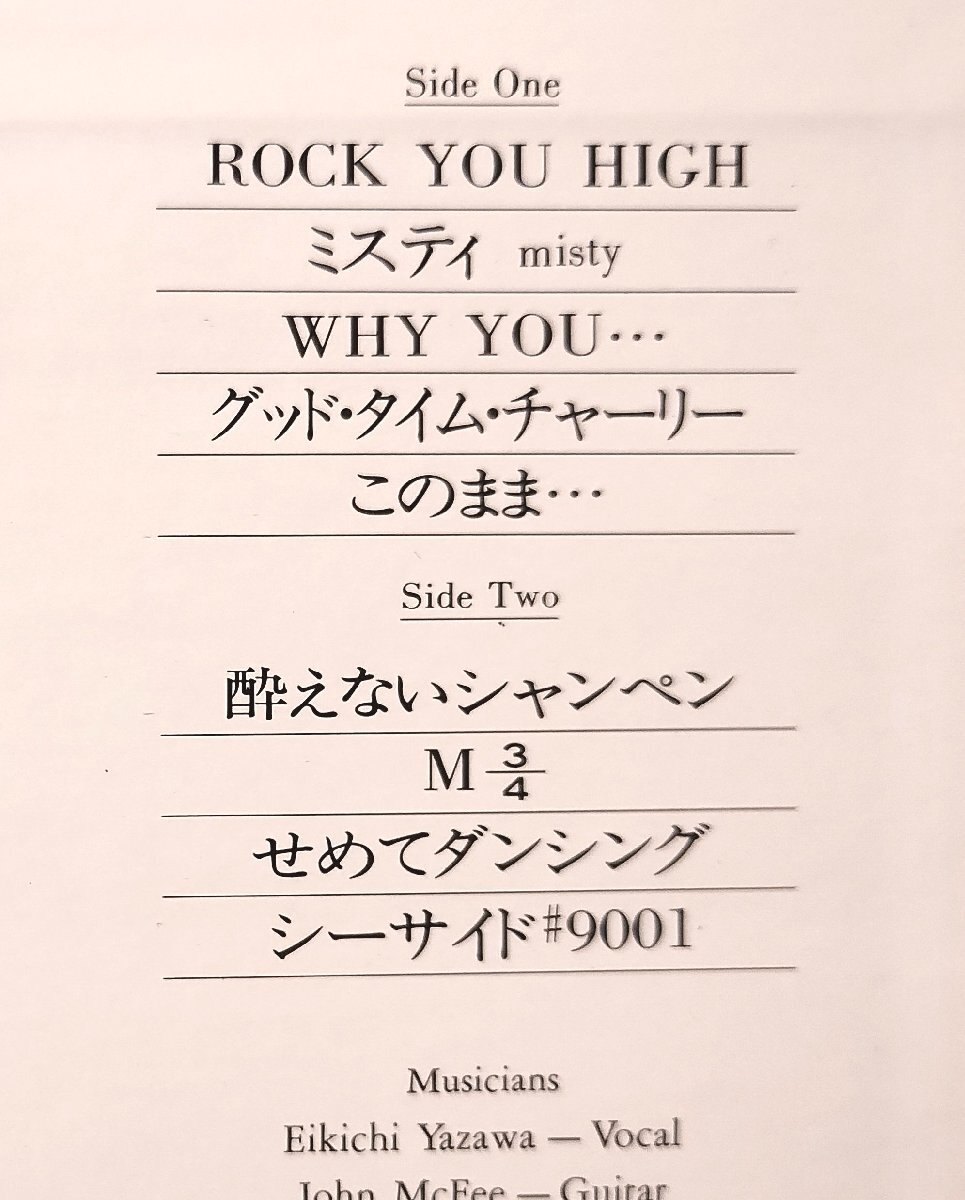 Side One
ROCK YOU HIGH
ミスティ misty
WHY YOU…
グッド・タイム・チャーリー
このまま…
Side Two
酔えないシャンペン
M 3/4
せめてダンシング
シーサイド#9001
Musicians
Eikichi Yazawa — Vocal
John McFee — Guitar